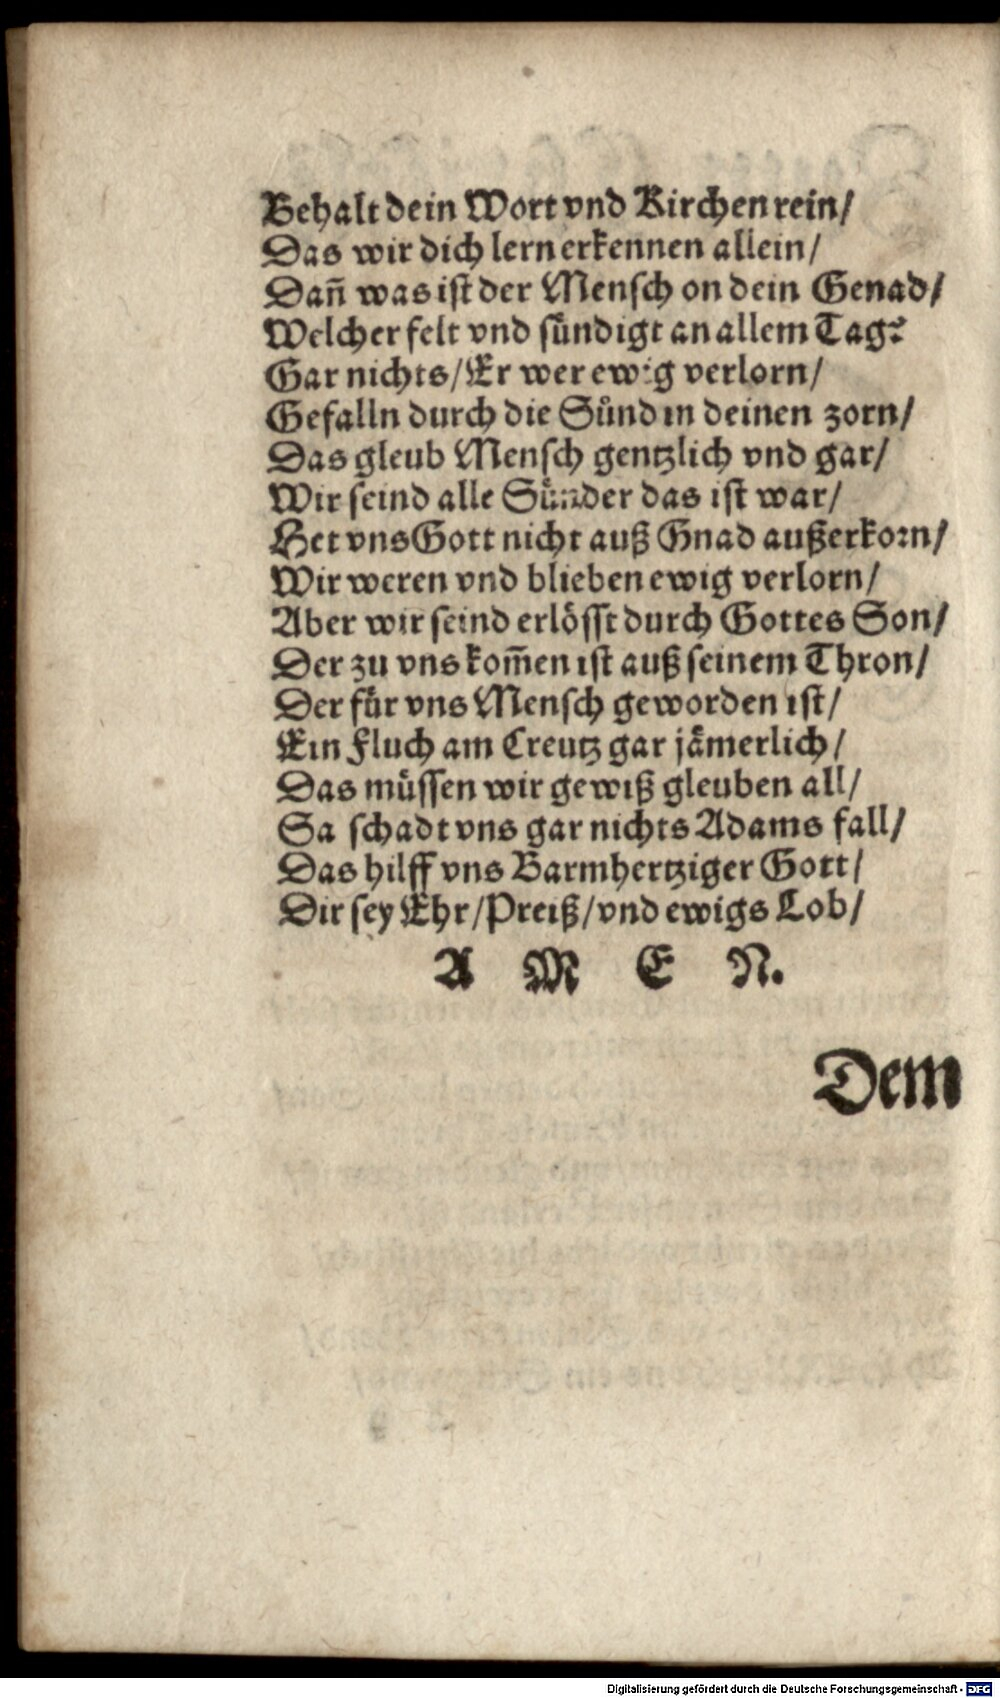 Behalt dein Wort vnd Kirchen rein/
Das wir dich lern erkennen allein/
Dañ was ist der Mensch on dein Genad/
Welcher felt vnd sündigt an allem Tag?
Gar nichts/Er wer ewig verlorn/
Gefalln durch die Sünd in deinen zorn/
Das gleub Mensch gentzlich vnd gar/
Wir seind alle Sünder das ist war/
Het vns Gott nicht auß Gnad außerkorn/
Wir weren vnd blieben ewig verlorn/
Aber wir seind erlösst durch Gottes Son/
Der zu vns kom̄en ist auß seinem Thron/
Der für vns Mensch geworden ist/
Ein Fluch am Creutz gar jämerlich/
Das müssen wir gewiß gleuben all/
Sa schadt vns gar nichts Adams fall/
Das hilff vns Barmhertziger Gott/
Dir sey Ehr/Preiß/vnd ewigs Lob/
A M E N.
Dem
Digitalisierung gefördert durch die Deutsche Forschungsgemeinschaft - DFG